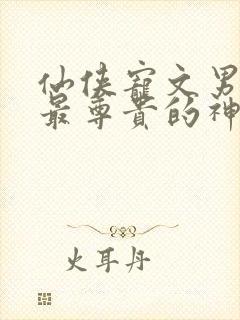 仙侠寵文男
最尊贵的神
火耳丹